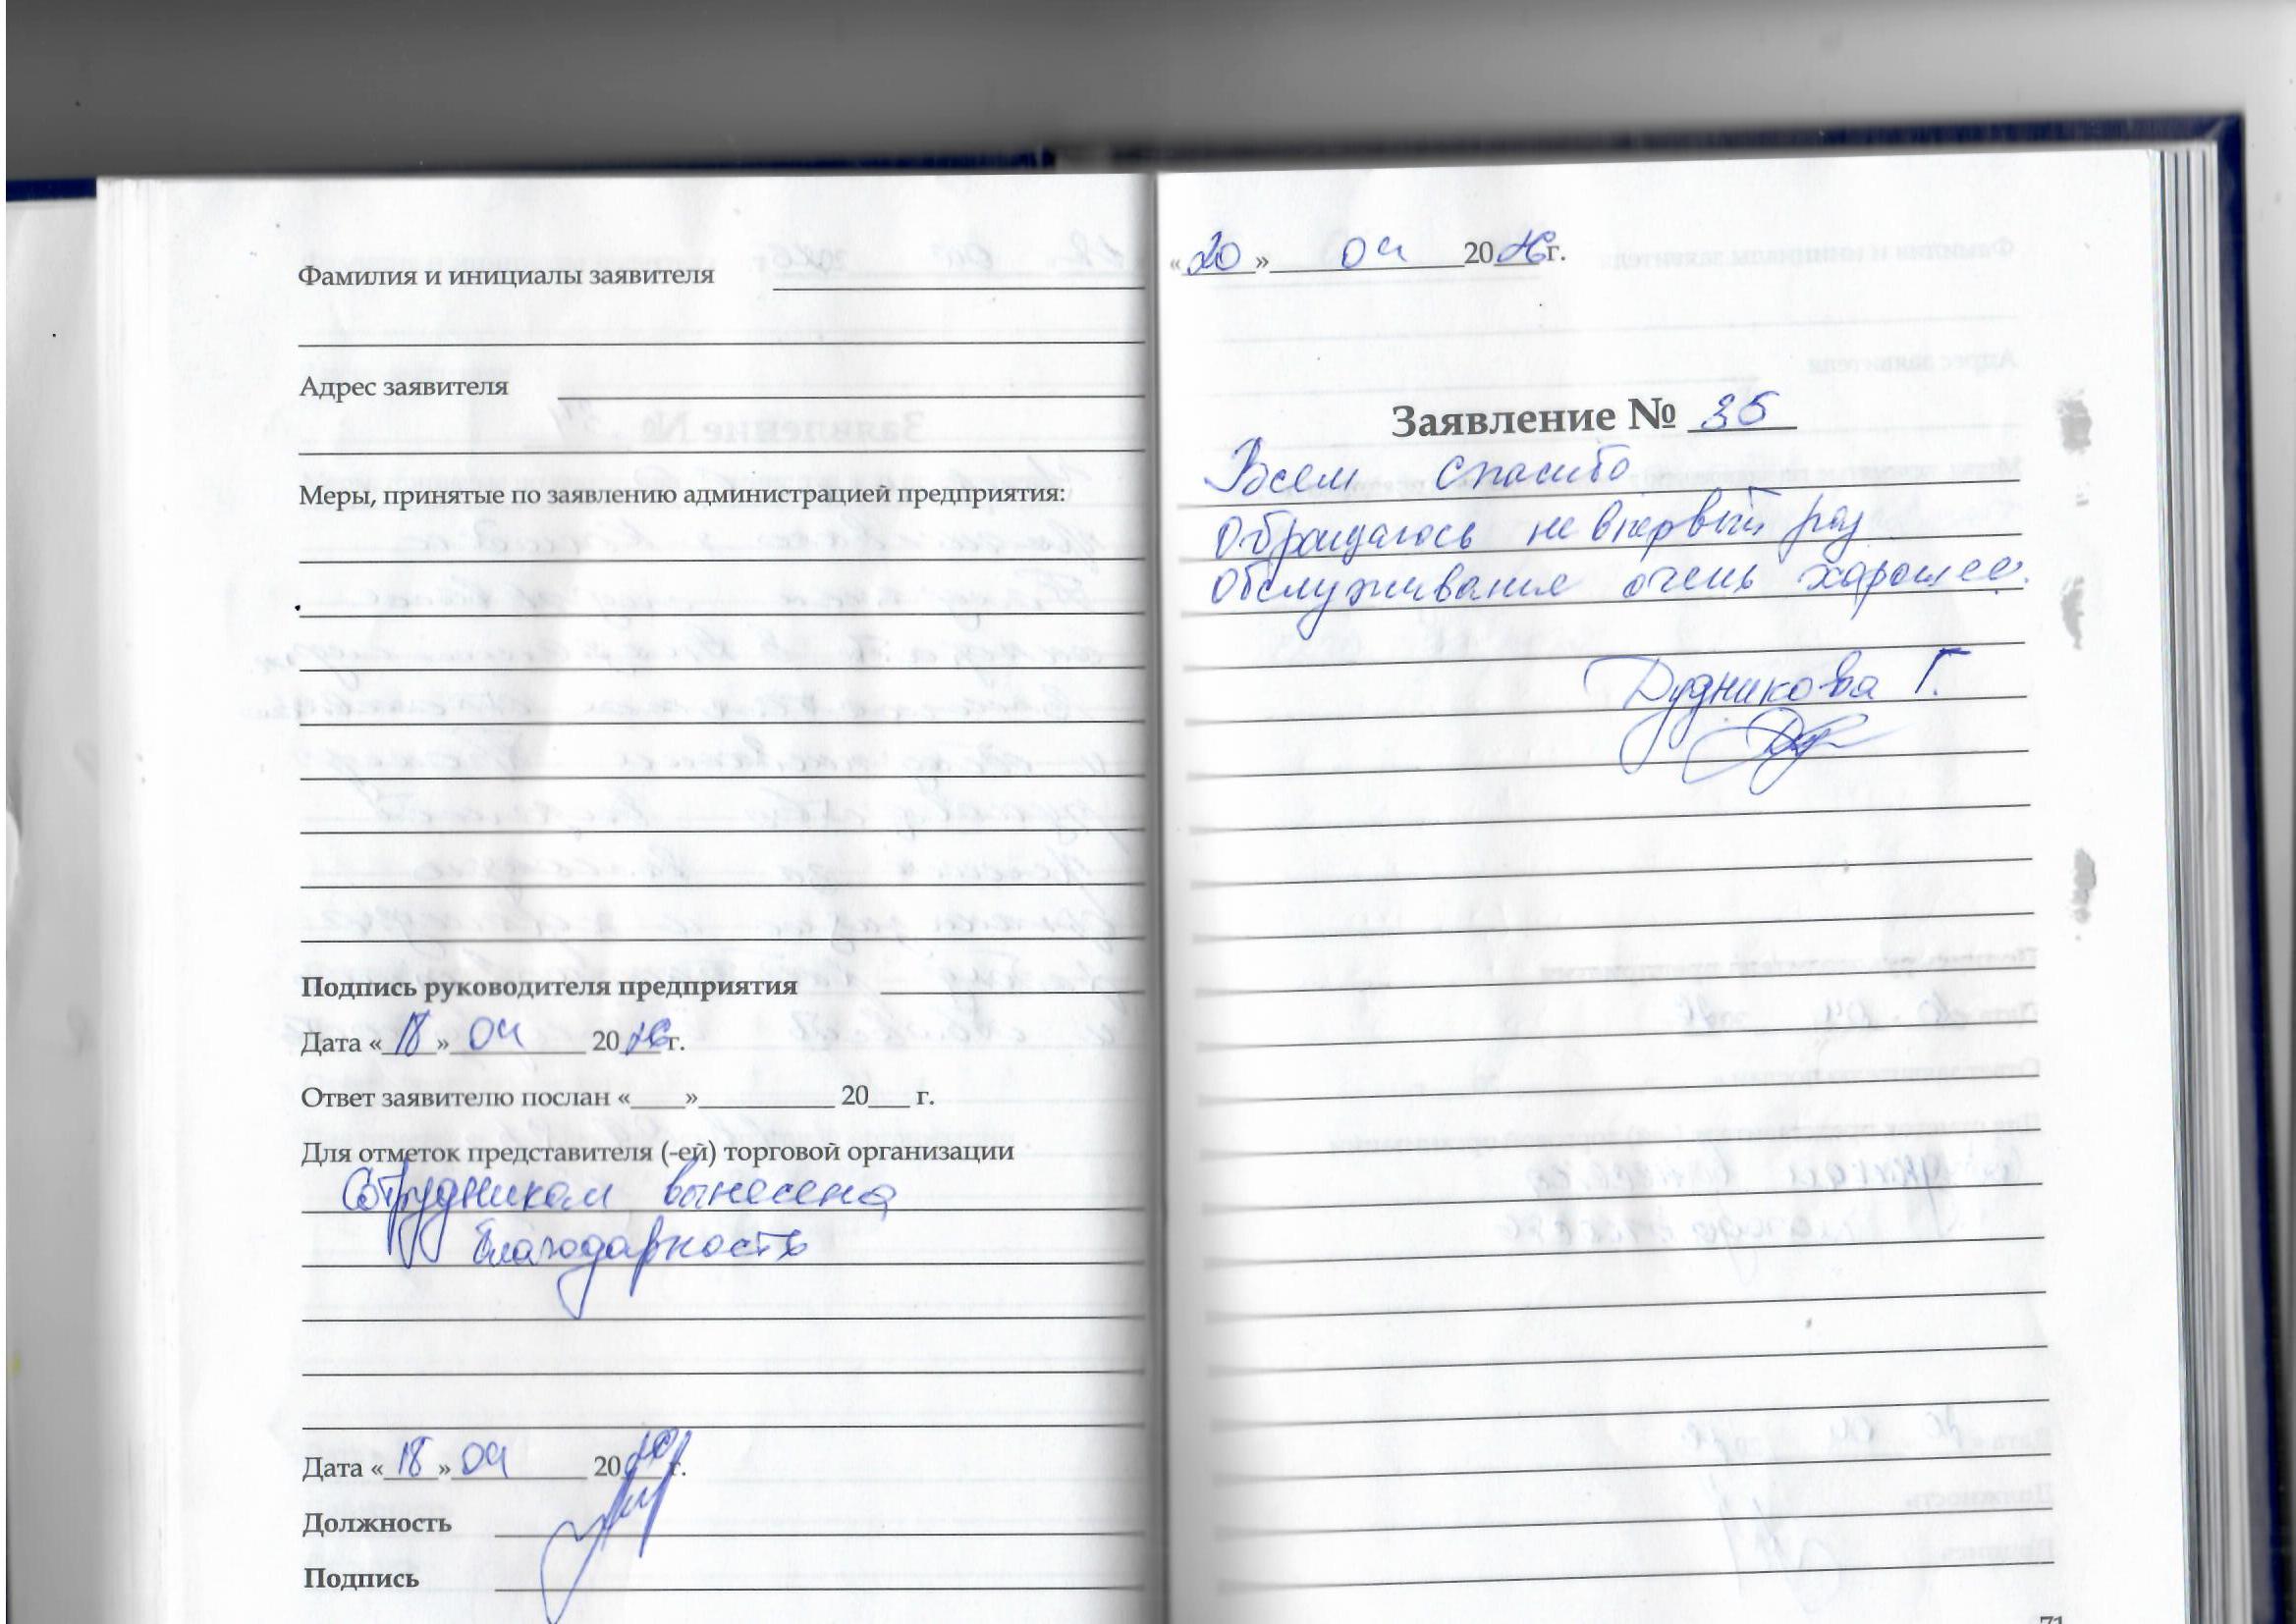 Фамилия и инициалы заявителя
Адрес заявителя
Меры, принятые по заявлению администрацией предприятия:
Подпись руководителя предприятия
Дата «18» 04 2026 г.
Ответ заявителю послан «____»__________ 20___ г.
Для отметок представителя (-ей) торговой организации
Сотрудникам вынесена
благодарность
Дата «18» 04 2026 г.
Должность
Подпись
«20» 04 2026 г.
Заявление № 35
Всем спасибо
Обращаюсь не впервый раз
Обслуживание очень хорошее.
Дудникова Г.
71